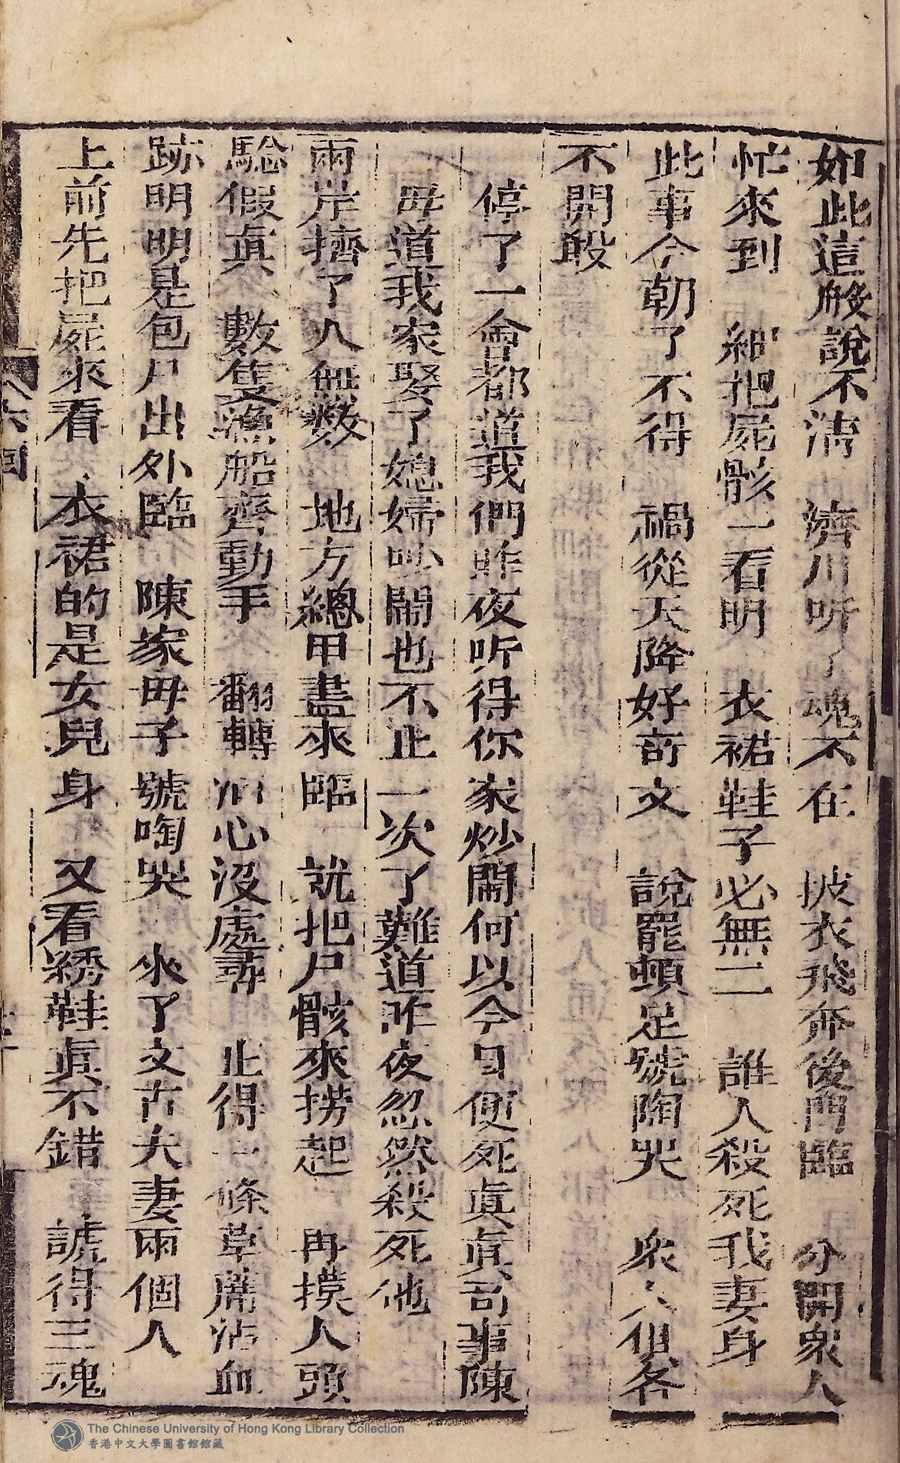 如此這般說不清　濟川听了魂不在　披衣飛奔後門臨　分開衆人
忙來到　細把屍骸一看明　衣裙鞋子必無二　誰人殺死我妻身
此事今朝了不得　禍從天降好奇文　說罷頓足號陶哭　衆人俱各
不開殿
停了一會都道我們昨夜听得你家炒鬧何以今日便死眞眞奇事陳
母道我家娶了媳婦吵鬧也不止一次了難道昨夜忽然殺死他
兩岸擠了人無数　地方總甲盡來臨　就把尸骸來撈起　再摸人頭
騐假眞　數隻漁船齊動手　翻轉河心没處尋　止得一條草蓆沾血
跡明明是包尸出外臨　陳家母子號啕哭　來了文古夫妻兩個人
上前先把屍來看　衣裙的是女兒身　又看綉鞋眞不錯　諕得三魂
The Chinese University of Hong Kong Library Collection
香港中文大學圖書館館藏